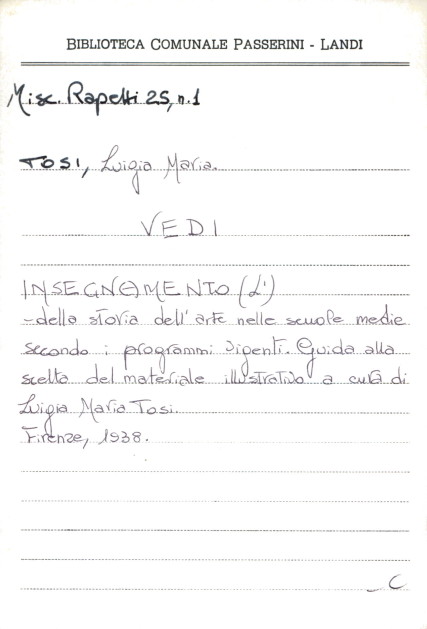 BIBLIOTECA COMUNALE PASSERINI - LANDI
Misc. Rapetti 25, n.1
TOSI, Luigia Maria.
VEDI
INSEGNAMENTO (L')
-della storia dell'arte nelle scuole medie
secondo i programmi vigenti. Guida alla
scelta del materiale illustrativo a cura di
Luigia Maria Tosi.
Firenze, 1938.
C